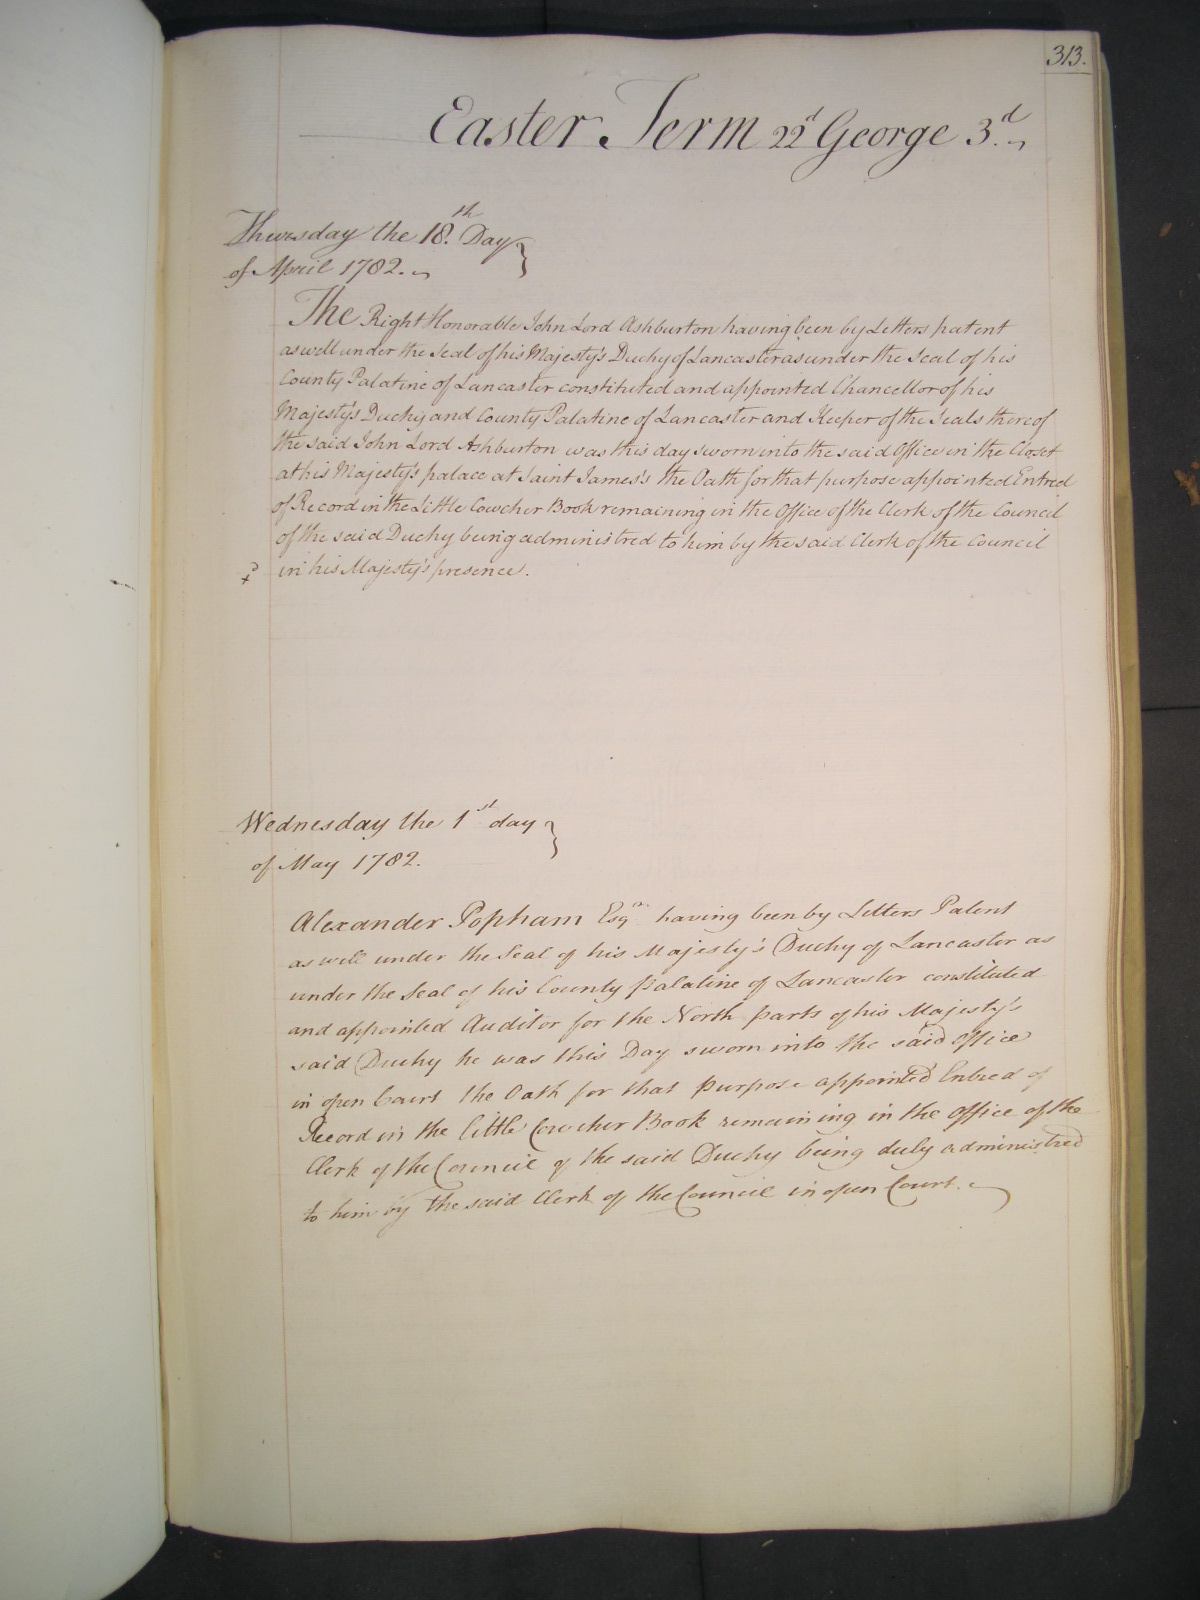 313.
Easter Term 22d George 3.d
Thursday the 18.th Day
of April 1782.
The Right Honorable John Lord Ashburton having been by Letters patent
as well under the Seal of his Majesty's Duchy of Lancaster as under the Seal of his
County Palatine of Lancaster constituted and appointed Chancellor of his
Majesty's Duchy and County Palatine of Lancaster and Keeper of the Seals thereof
the said John Lord Ashburton was this day sworn into the said Office in the Closet
at his Majesty's palace at Saint James's the Oath for that purpose appointed Entred
of Record in the Little Cowcher Book remaining in the Office of the Clerk of the Council
of the said Duchy being administred to him by the said Clerk of the Council
in his Majesty's presence.
Wednesday the 1st day
of May 1782.
Alexander Popham Esqr. having been by Letters Patent
as well under the Seal of his Majesty's Duchy of Lancaster as
under the Seal of his County palatine of Lancaster constituted
and appointed Auditor for the North parts of his Majesty's
said Duchy he was this Day sworn into the said Office
in open Court the Oath for that purpose appointed Entred of
Record in the little Cowcher Book remaining in the Office of the
Clerk of the Council of the said Duchy being duly administred
to him by the said Clerk of the Council in open Court.